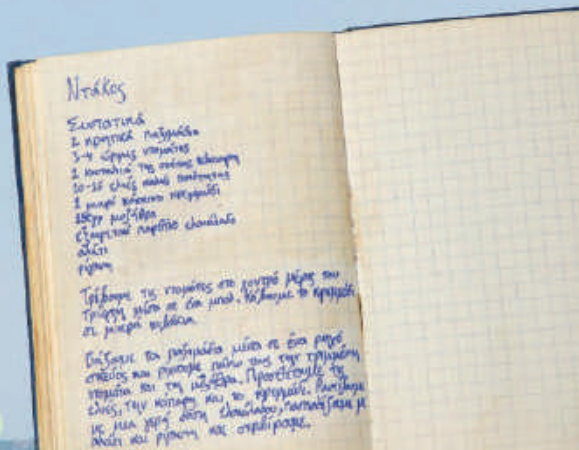 Ντάκος
Συστατικά
2 κρητικά παξιμάδια
3-4 ώριμες ντομάτες
1 κουταλιά της σούπας κάππαρη
10-15 ελιές καλής ποιότητας
1 μικρό κόκκινο κρεμμύδι
μυζήθρα
εξαιρετικό παρθένο ελαιόλαδο
αλάτι
ρίγανη
Τρίβουμε τις ντομάτες στο χοντρό μέρος του
τρίφτη μέσα σε ένα μπολ. Κόβουμε το κρεμμύδι
σε μικρά κυβάκια.
Βάζουμε τα παξιμάδια μέσα σε ένα ρηχό
σκεύος και ρίχνουμε πάνω τους την τριμμένη
ντομάτα και τη μυζήθρα. Προσθέτουμε τις
ελιές, την κάπαρη και το κρεμμύδι. Ραντίζουμε
με μια γερή δόση ελαιόλαδου, πασπαλίζουμε με
αλάτι και ρίγανη και σερβίρουμε.